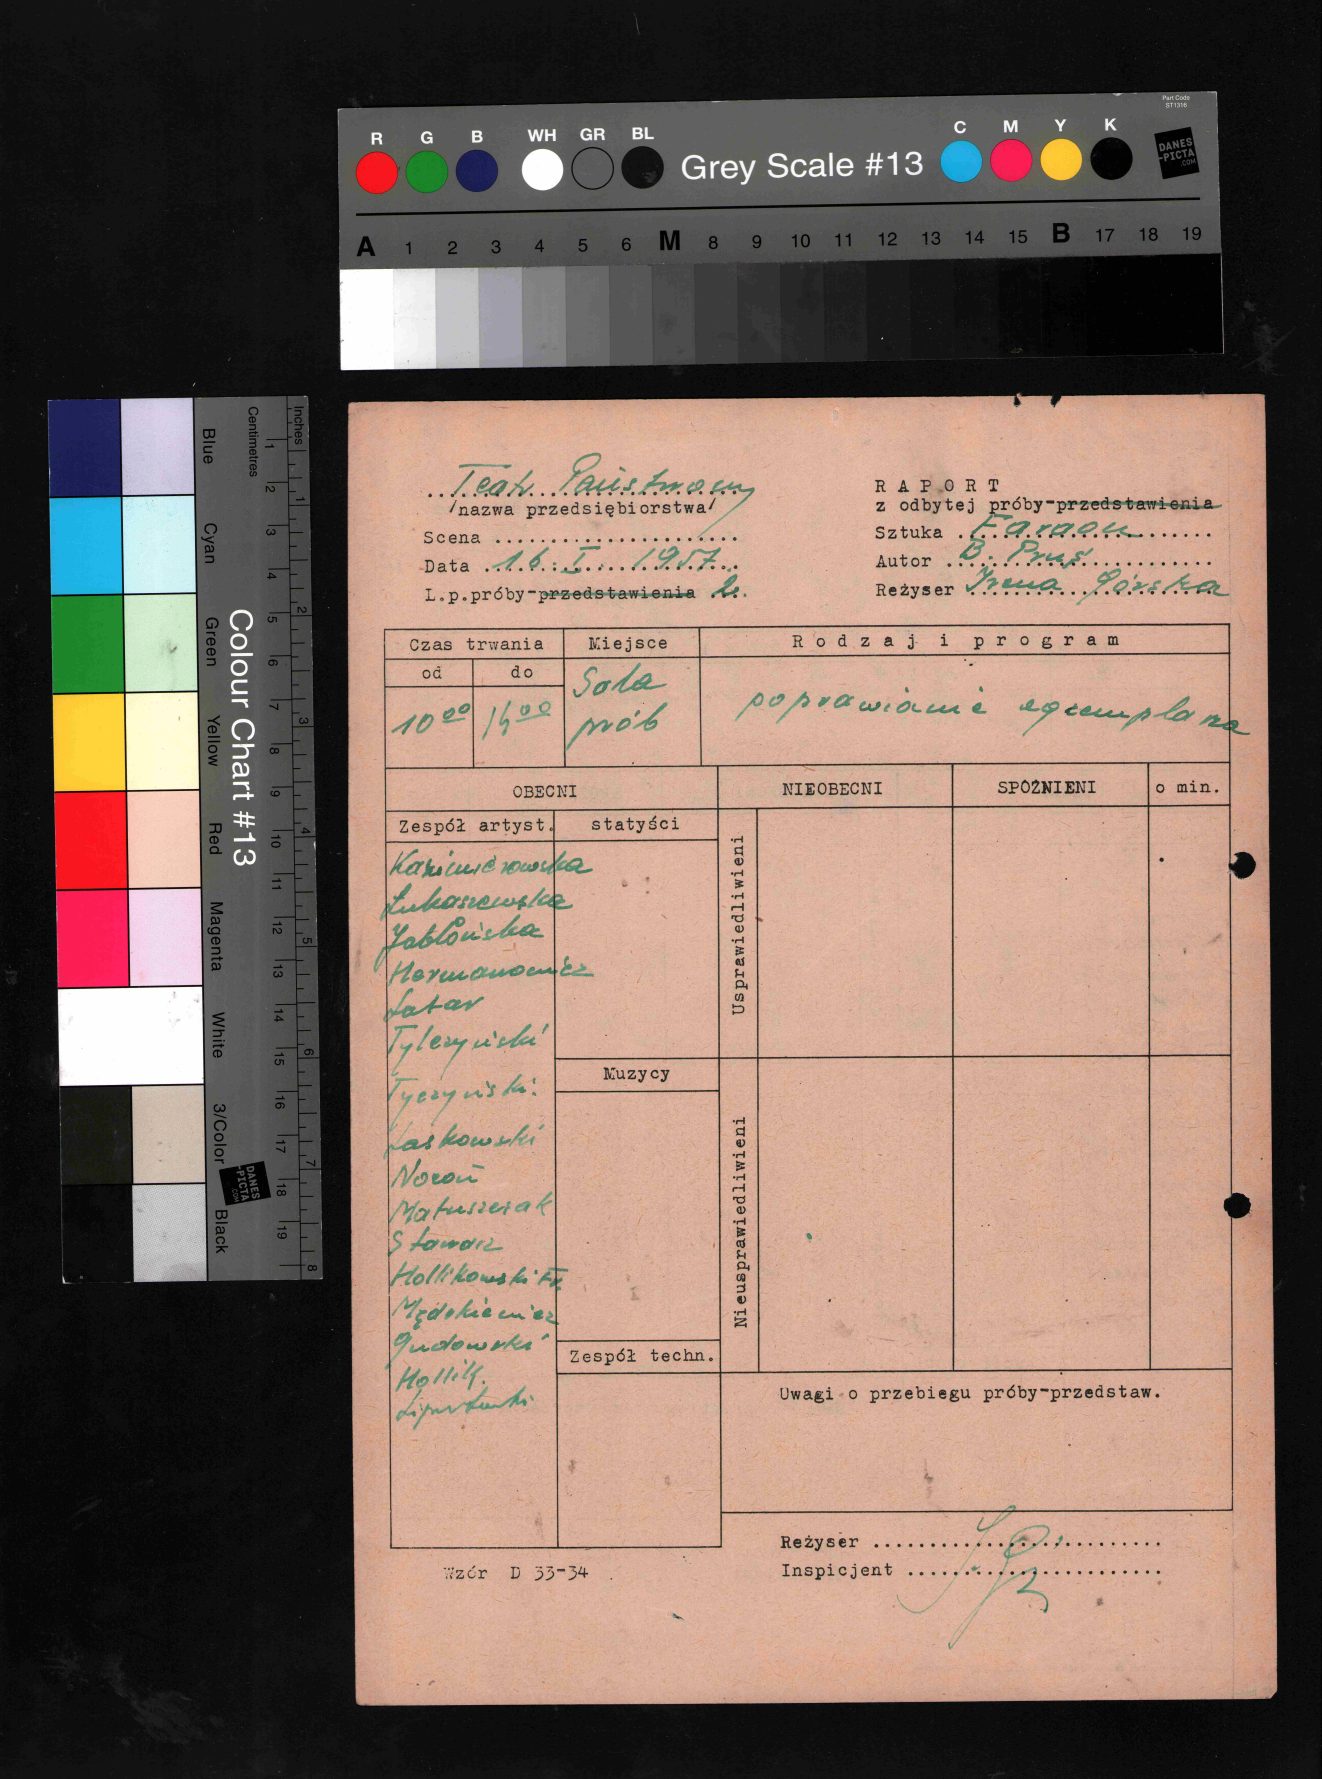 Part Code
ST1316
R G B WH GR BL Grey Scale #13 C M Y K
DANES
-PICTA
.COM
A 1 2 3 4 5 6 M 8 9 10 11 12 13 14 15 B 17 18 19
Inches
Centimetres
Colour Chart #13
Blue Cyan Green Yellow Red Magenta White 3/Color Black
1 2 3 4 5 6 7 8 9 10 11 12 13 14 15 16 17 18 19
1 2 3 4 5 6 7 8
DANES
-PICTA
.COM
Teatr Państwowy
/nazwa przedsiębiorstwa/
Scena
Data 16. I. 1957
L.p.próby-przedstawienia 2.
R A P O R T
z odbytej próby-przedstawienia
Sztuka Faraon
Autor B. Prus
Reżyser Irena Górska
Czas trwania Miejsce Rodzaj i program
od do
10 00 14 00 Sala prób poprawianie egzemplarza
OBECNI NIEOBECNI SPÓŹNIENI o min.
Zespół artyst. statyści
Usprawiedliwieni
Kazimierowska
Łukaszewska
Jabłońska
Hermanowicz
Latar
Tylczyński
Muzycy
Tyczyński
Laskowski
Noroń
Matuszczak
Stawarz
Hollikowski Fr.
Mędrkiewicz
Gudowski
Nieusprawiedliwieni
Zespół techn.
Uwagi o przebiegu próby-przedstaw.
Reżyser
Inspicjent
Wzór D 33-34